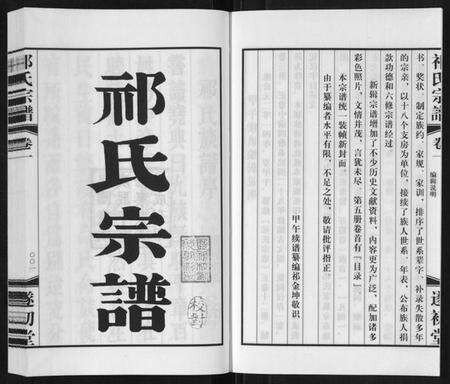 祁氏宗譜 卷一 編輯說明
書、奖状、制定族约、家规、家训、排序了世系辈字、补录失散多年
的宗亲，以十八个支房为单位，接续了族人世系、年表，公布族人捐
款功德和六修宗谱经过。
新辑宗谱增加了不少历史文献资料，内容更为广泛，配加诸多
彩色照片，文情并茂，言犹未尽。第五册卷首有「目录」。
本宗谱统一装帧新封面。
由于纂编者水平有限，不足之处，敬请批评指正。
甲午续谱纂编祁金坤敬识
遂初堂
祁氏宗譜
校對
祁氏宗譜 卷一
〇〇二
遂初堂